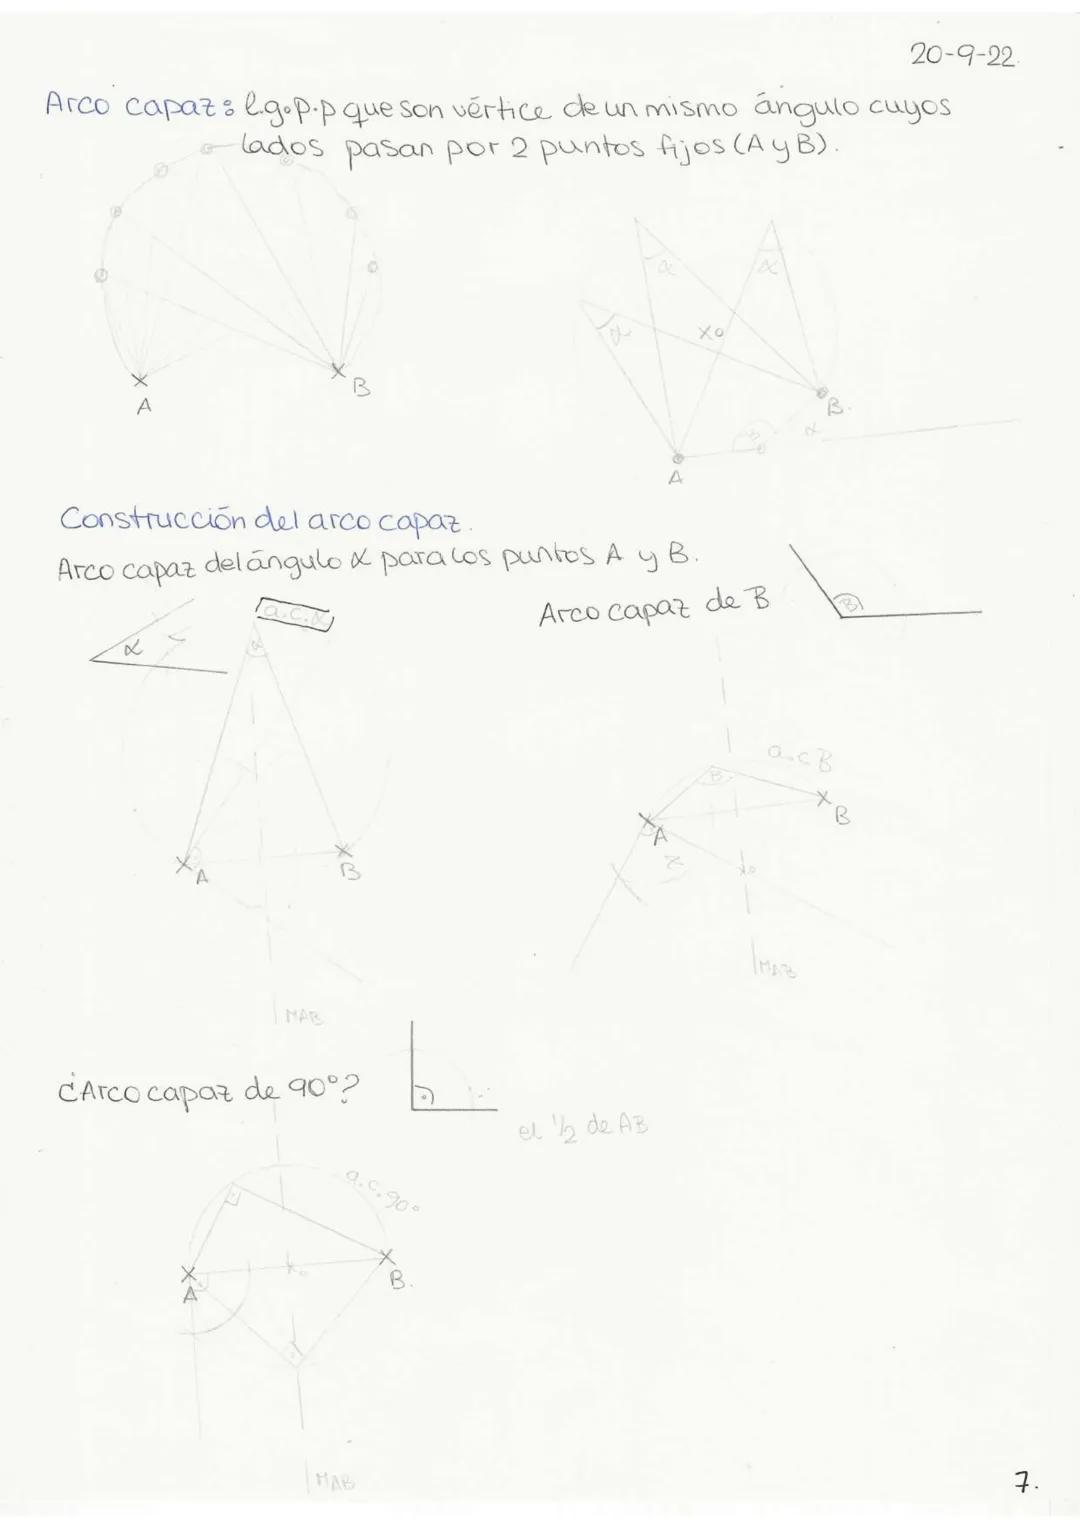 20-9-22.
Arco capaz: l.g.p.p que son vértice de un mismo ángulo cuyos
lados pasan por 2 puntos fijos (A y B).
A
B
α
α
α
A
B.
α
Construcción del arco capaz.
Arco capaz del ángulo α para los puntos A y B.
α
a.c.α
α
A
B
MAB
Arco capaz de B
B
a.c B
B
A
B
MAB
¿Arco capaz de 90°?
el 1/2 de AB
a.c. 90°
A
B.
MAB
7.